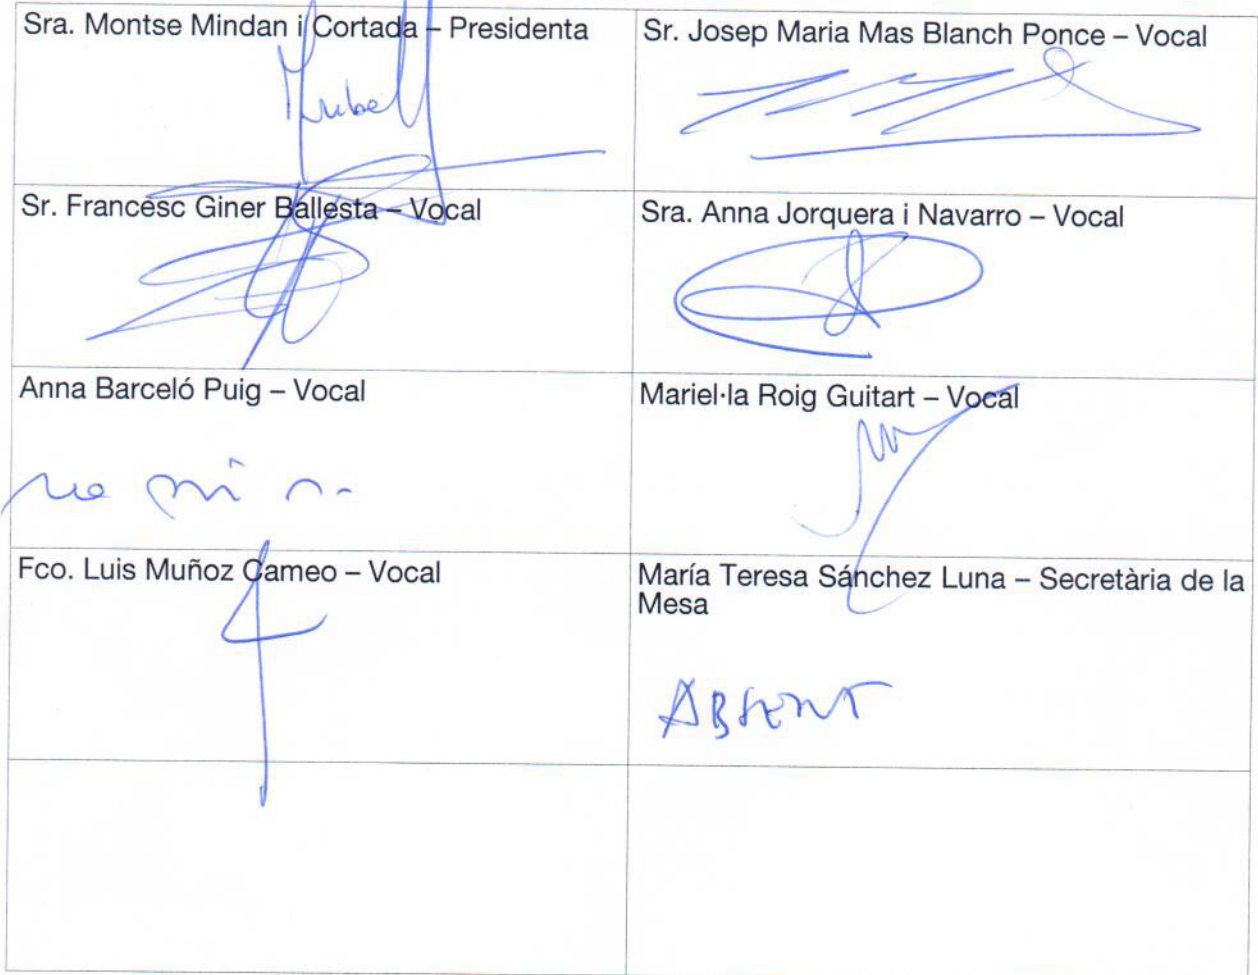 Sra. Montse Mindan i Cortada – Presidenta
Sr. Josep Maria Mas Blanch Ponce – Vocal
Sr. Francesc Giner Ballesta – Vocal
Sra. Anna Jorquera i Navarro – Vocal
Anna Barceló Puig – Vocal
Mariel·la Roig Guitart – Vocal
Fco. Luis Muñoz Cameo – Vocal
María Teresa Sánchez Luna – Secretària de la
Mesa
ABSENT